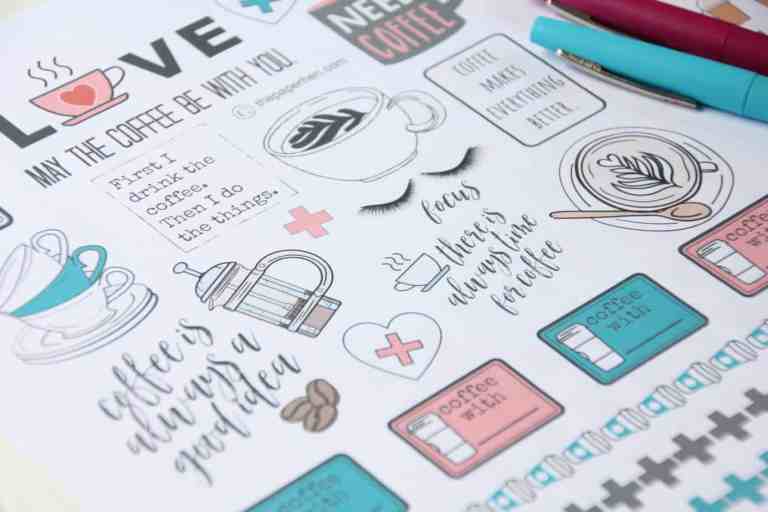 NEED
COFFEE
LOVE
MAY THE COFFEE BE WITH YOU.
thepaperhen.com
COFFEE
MAKES
EVERYTHING
BETTER.
First I
drink the
coffee.
Then I do
the things.
focus
there is
always time
for coffee
coffee is
always a
good idea
coffee
with
coffee
with
coffee
with
coffee
with